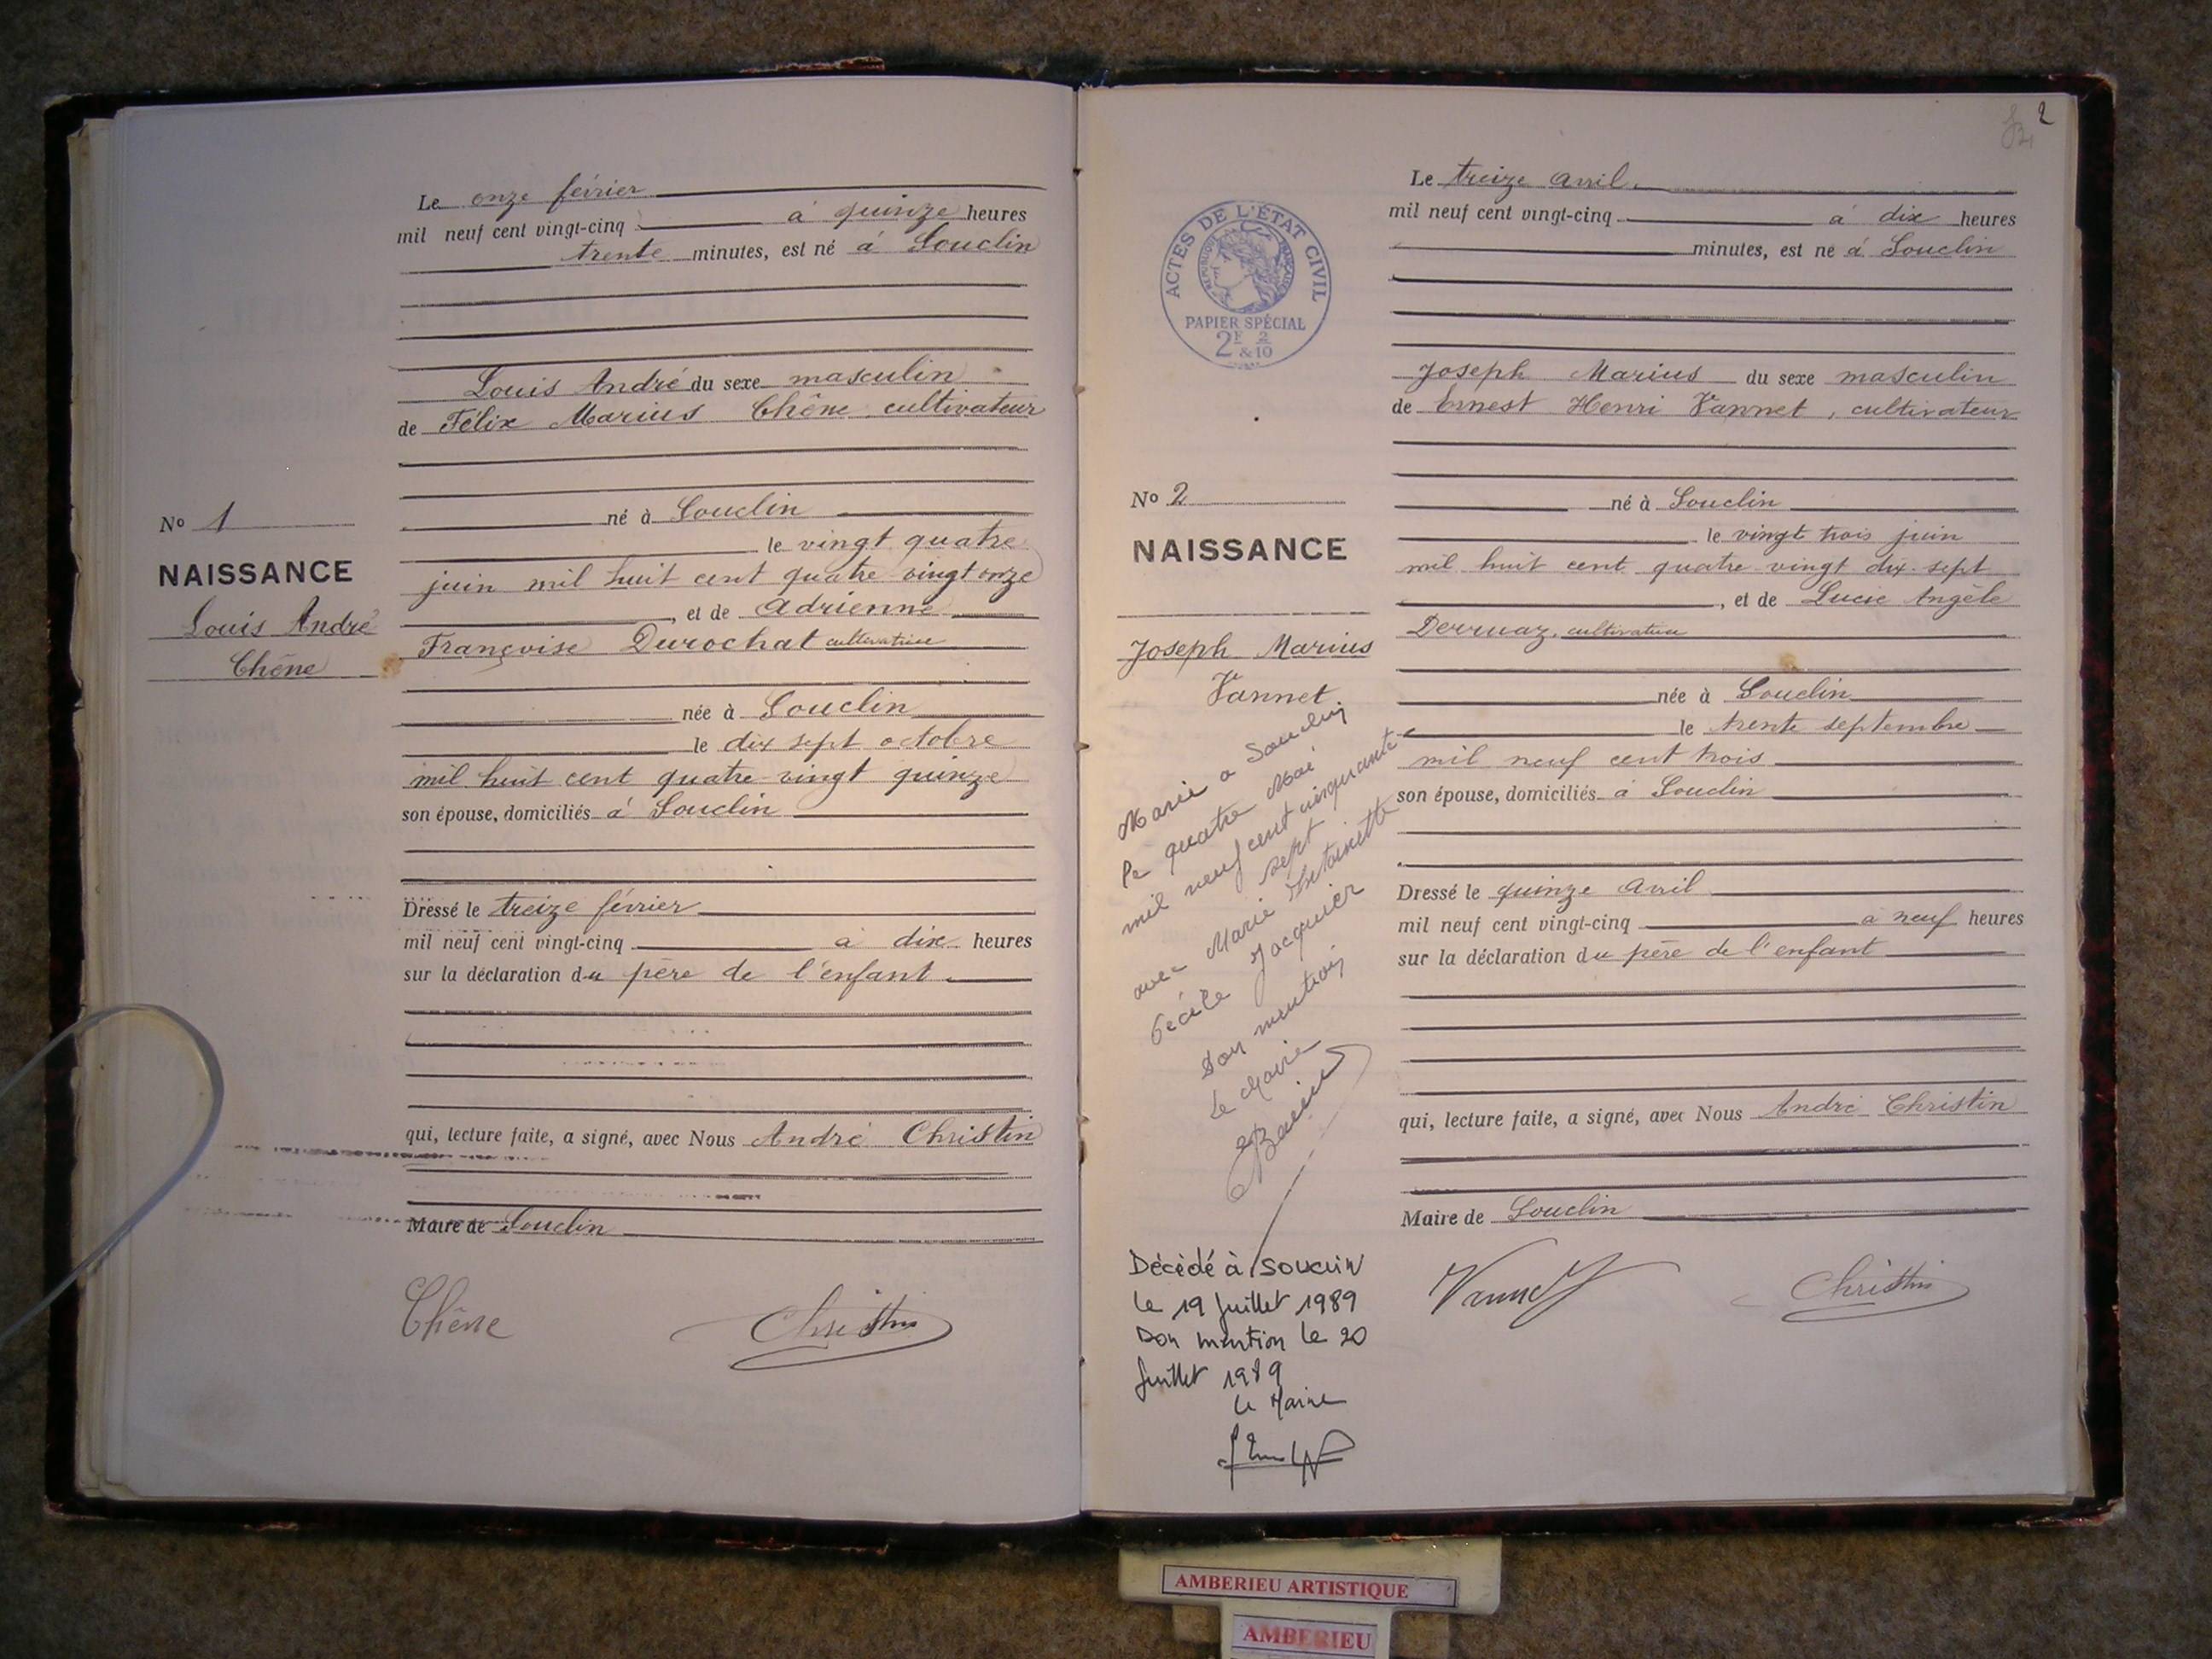 Le onze février
mil neuf cent vingt-cinq à quinze heures
trente minutes, est né à Souclin
Louis André du sexe masculin
de Félix Marius Chêne cultivateur
né à Souclin
le vingt quatre
juin mil huit cent quatre vingt onze
, et de Adrienne
Françoise Durochat cultivatrice
née à Souclin
le dix sept octobre
mil huit cent quatre-vingt quinze
son épouse, domiciliés à Souclin
Dressé le treize février
mil neuf cent vingt-cinq à dix heures
sur la déclaration du père de l'enfant.
qui, lecture faite, a signé, avec Nous André Christin
Maire de Souclin
Chêne Christin
No 1
NAISSANCE
Louis André
Chêne
2
ACTES DE L'ÉTAT CIVIL
RÉPUBLIQUE FRANÇAISE
PAPIER SPÉCIAL
2F 2
&10
No 2
NAISSANCE
Joseph Marius
Vannet
Marié a Souclin
le quatre Mai
mil neuf cent cinquante
sept
avec Marie Antoinette
Cécile Jacquier
Don mention
Le Maire
Décédé à Souclin
le 19 Juillet 1989
Don mention le 20
Juillet 1989
Le Maire
Le treize avril.
mil neuf cent vingt-cinq à dix heures
minutes, est né à Souclin
Joseph Marius du sexe masculin
de Ernest Henri Vannet, cultivateur
né à Souclin
le vingt trois juin
mil huit cent quatre-vingt dix-sept
, et de Lucie Angèle
Derruaz, cultivatrice
née à Souclin
le trente septembre
mil neuf cent trois
son épouse, domiciliés à Souclin
Dressé le quinze Avril
mil neuf cent vingt-cinq à neuf heures
sur la déclaration du père de l'enfant
qui, lecture faite, a signé, avec Nous André Christin
Maire de Souclin
Vannet Christin
AMBERIEU ARTISTIQUE
AMBERIEU